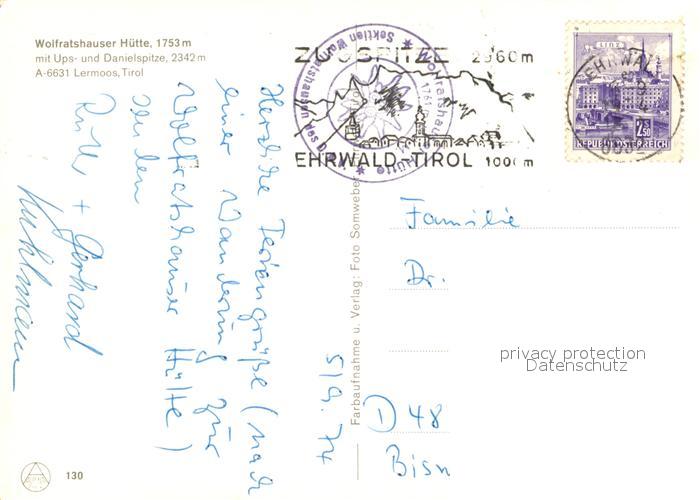 Wolfratshauser Hütte, 1753 m
mit Ups- und Danielspitze, 2342 m
A-6631 Lermoos, Tirol
ZUGSPITZE 2960m
EHRWALD-TIROL 1000m
Sektion Wolfratshausen
LINZ
2.50
REPUBLIK ÖSTERREICH
EHRWALD
Herzliche Feriengrüße (nach
einer Wanderung zur
Wolfratshauser Hütte)
senden
Ruth + Gerhard
Kuhlmann
5/9. 74
Farbaufnahme u. Verlag: Foto Somweber
Familie
Dr.
privacy protection
Datenschutz
D 48
130